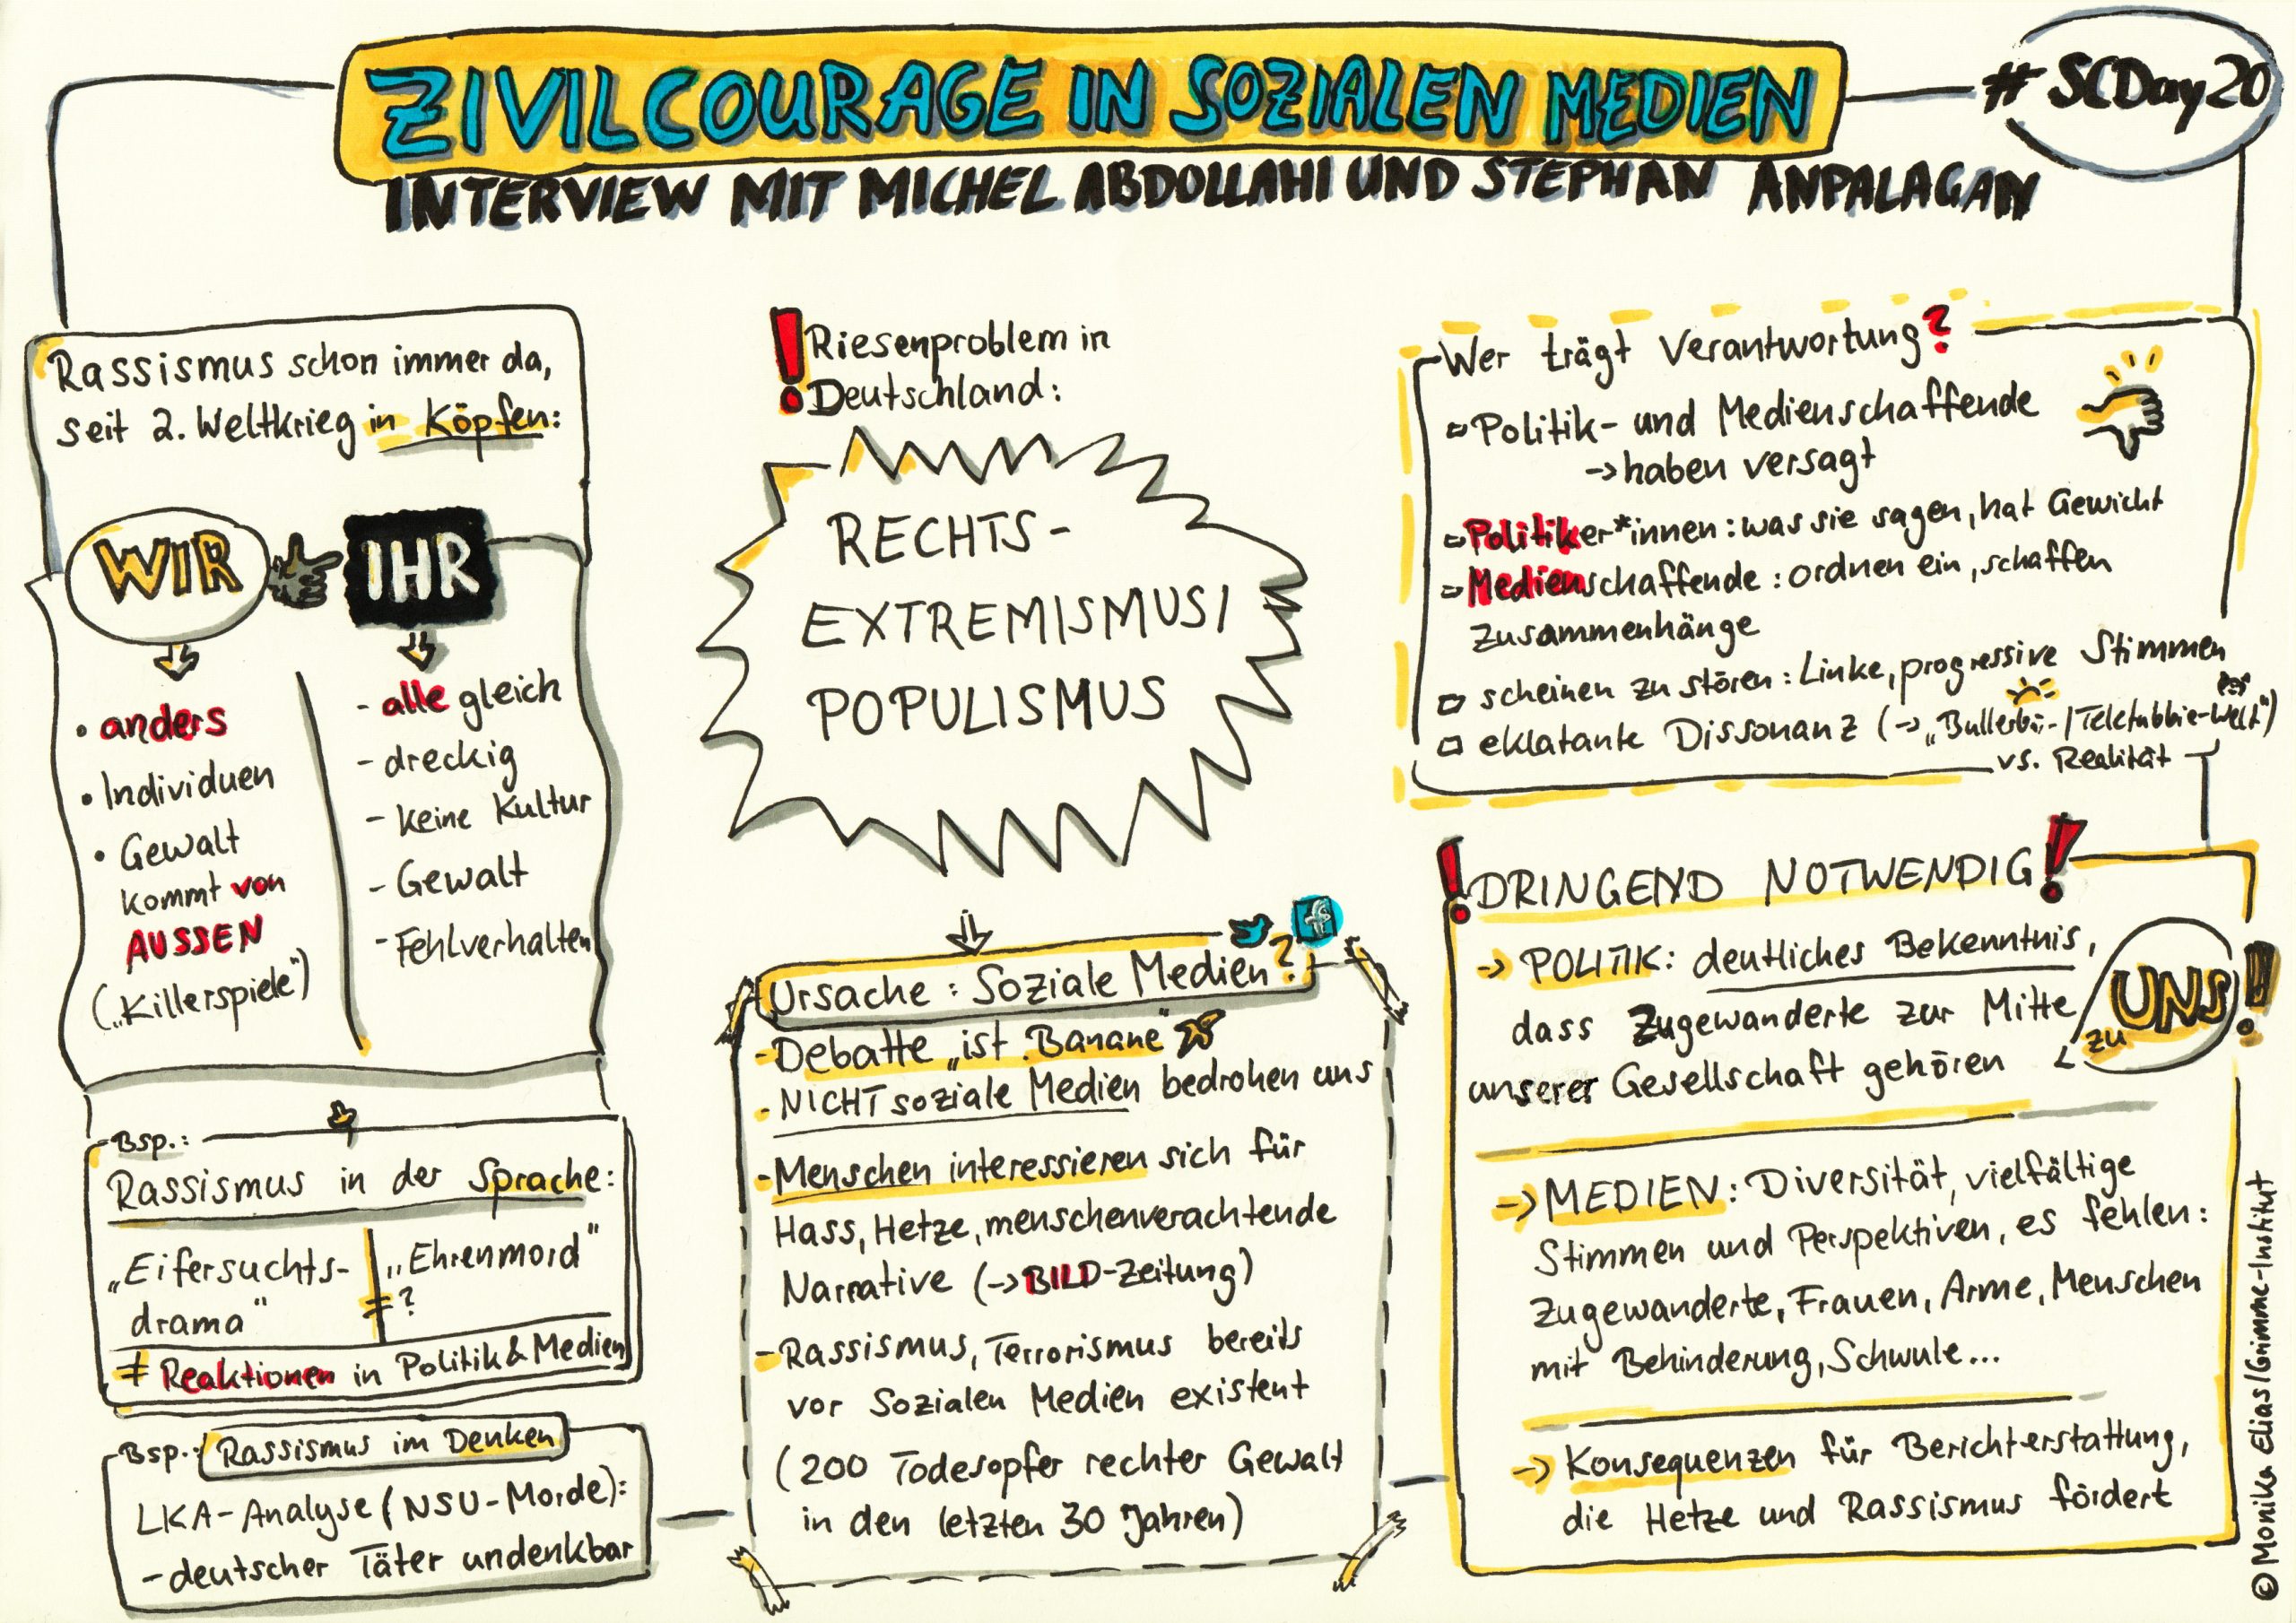 ZIVILCOURAGE IN SOZIALEN MEDIEN
# SCDay20
INTERVIEW MIT MICHEL ABDOLLAHI UND STEPHAN ANPALAGAN
Rassismus schon immer da,
seit 2. Weltkrieg in Köpfen:
WIR
IHR
• anders
• Individuen
• Gewalt
kommt von
AUSSEN
("Killerspiele")
- alle gleich
- dreckig
- keine Kultur
- Gewalt
- Fehlverhalten
Bsp.:
Rassismus in der Sprache:
„Eifersuchts-
drama"
„Ehrenmord"
≠ ?
≠ Reaktionen in Politik & Medien
Bsp.: Rassismus im Denken
LKA-Analyse (NSU-Morde):
- deutscher Täter undenkbar
! Riesenproblem in
Deutschland:
RECHTS-
EXTREMISMUS/
POPULISMUS
Ursache: Soziale Medien?
- Debatte „ist Banane"
- NICHT soziale Medien bedrohen uns
- Menschen interessieren sich für
Hass, Hetze, menschenverachtende
Narrative (→ BILD-Zeitung)
- Rassismus, Terrorismus bereits
vor Sozialen Medien existent
(200 Todesopfer rechter Gewalt
in den letzten 30 Jahren)
Wer trägt Verantwortung?
Politik- und Medienschaffende
→ haben versagt
Politiker*innen: was sie sagen, hat Gewicht
Medienschaffende: ordnen ein, schaffen
Zusammenhänge
scheinen zu stören: Linke, progressive Stimmen
eklatante Dissonanz (→ „Bullerbü-/Teletubbie-Welt")
vs. Realität
! DRINGEND NOTWENDIG!
→ POLITIK: deutliches Bekenntnis,
dass Zugewanderte zur Mitte
unserer Gesellschaft gehören
zu UNS!
→ MEDIEN: Diversität, vielfältige
Stimmen und Perspektiven, es fehlen:
Zugewanderte, Frauen, Arme, Menschen
mit Behinderung, Schwule...
→ Konsequenzen für Berichterstattung,
die Hetze und Rassismus fördert
© Monika Elias/Grimme-Institut